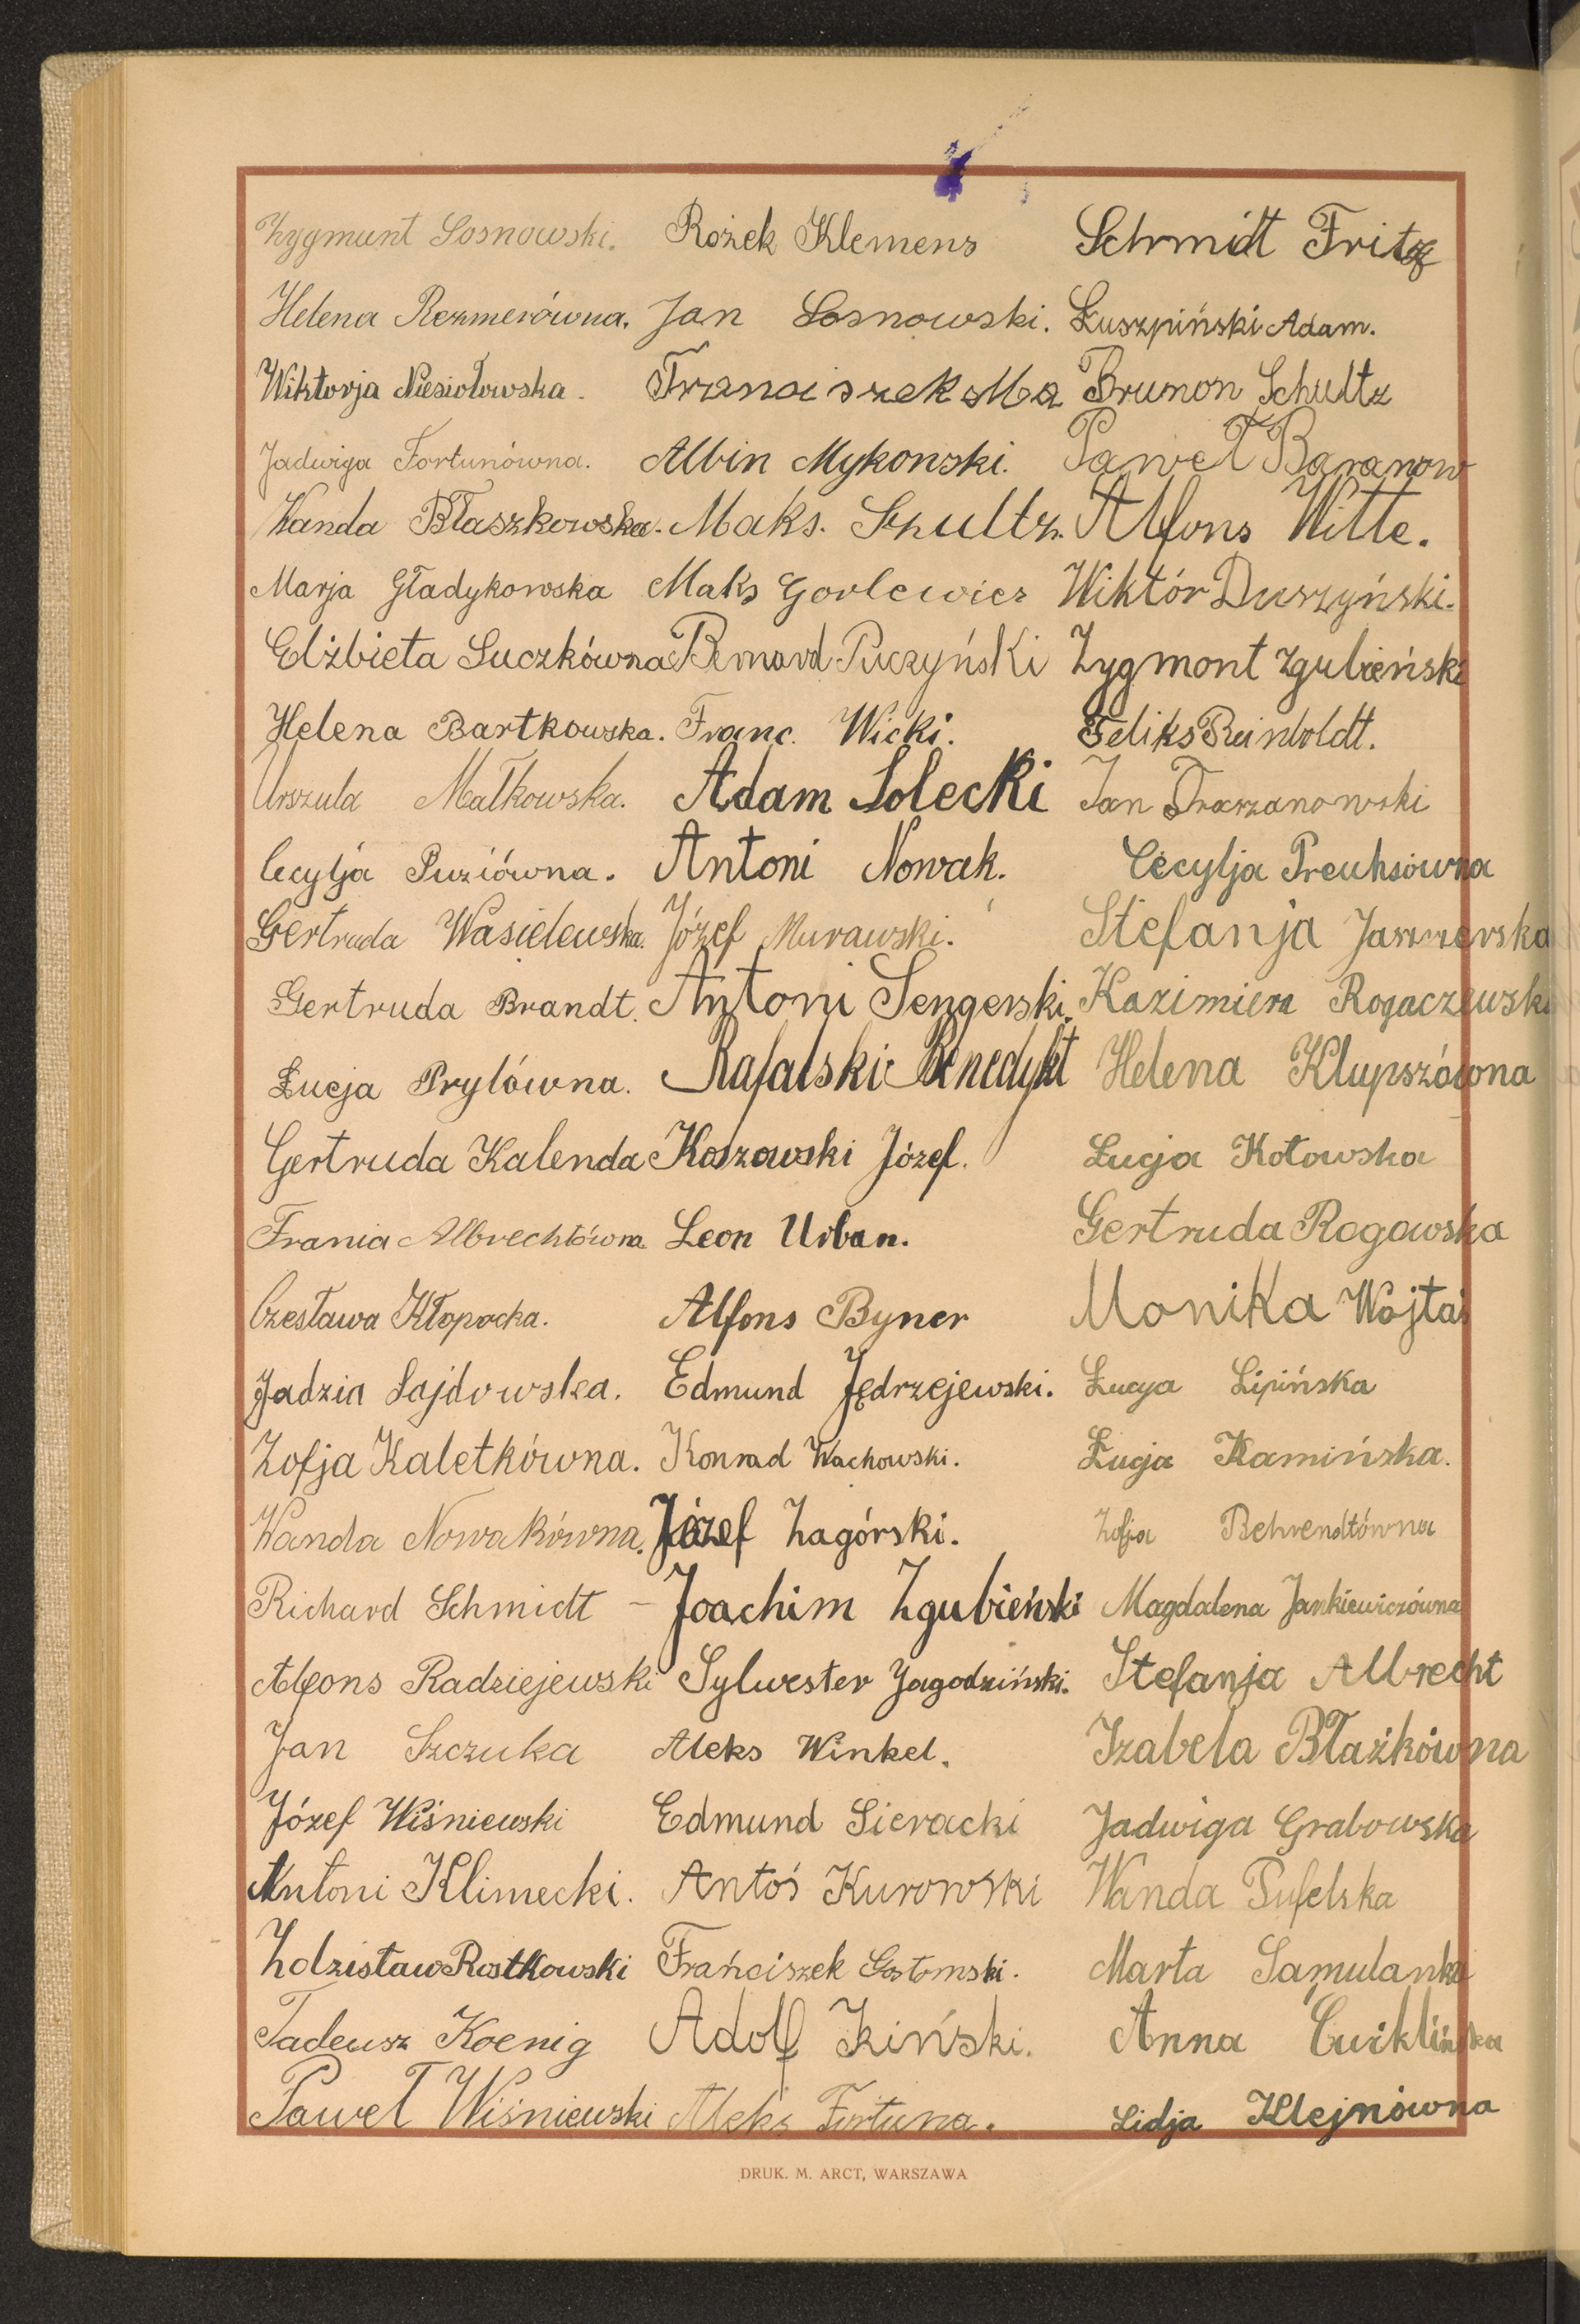 Zygmunt Sosnowski. Rożek Klemens Schmidt Fritz
Helena Rezmerówna. Jan Sosnowski. Łuszpiński Adam.
Wiktorja Niesiołowska. Franciszek Ma Brunon Schultz
Jadwiga Fortunówna. Albin Mykonski. Paweł Baranow
Wanda Błaszkowska. Maks. Szultz. Alfons Witte.
Marja Gładykowska Maks Gorlewicz Wiktór Duszyński.
Elżbieta Suczkówna Bernard Puczyński Zygmont Zgubieński
Helena Bartkowska. Franc. Wicki. Feliks Reinboldt.
Urszula Małkowska. Adam Solecki Jan Traszanowski
Cecylja Puziówna. Antoni Nowak. Cecylja Preuhsówna
Gertruda Wasielewska. Józef Murawski. Stefanja Jaszzerska
Gertruda Brandt. Antoni Sengerski. Kazimiera Rogaczewska
Łucja Prylówna. Rafalski Benedykt Helena Klupszówna
Gertruda Kalenda Koszowski Józef. Łucja Kotowska
Frania Albrechtówna Leon Urban. Gertruda Rogowska
Czesława Kłopocka. Alfons Byner Monika Wojtaś
Jadzia Sajdowska. Edmund Jędrzejewski. Łucja Lipińska
Zofja Kaletkówna. Konrad Wachowski. Łucja Kamińska.
Wanda Nowakówna. Józef Zagórski. Zofja Behrendtówna
Richard Schmidt - Joachim Zgubieński Magdalena Jankiewiczówna
Alfons Radziejewski Sylwester Jagodziński. Stefanja Albrecht
Jan Szczuka Aleks Winkel. Izabela Błażkówna
Józef Wiśniewski Edmund Sieracki Jadwiga Grabowska
Antoni Klimecki. Antoś Kurowski Wanda Pufelska
Zdzisław Rostkowski Frańciszek Gostomski. Marta Samulanka
Tadeusz Koenig Adolf Ziński. Anna Ćwiklińska
Paweł Wiśniewski Aleks Fortuna. Lidja Klejnówna
DRUK. M. ARCT, WARSZAWA